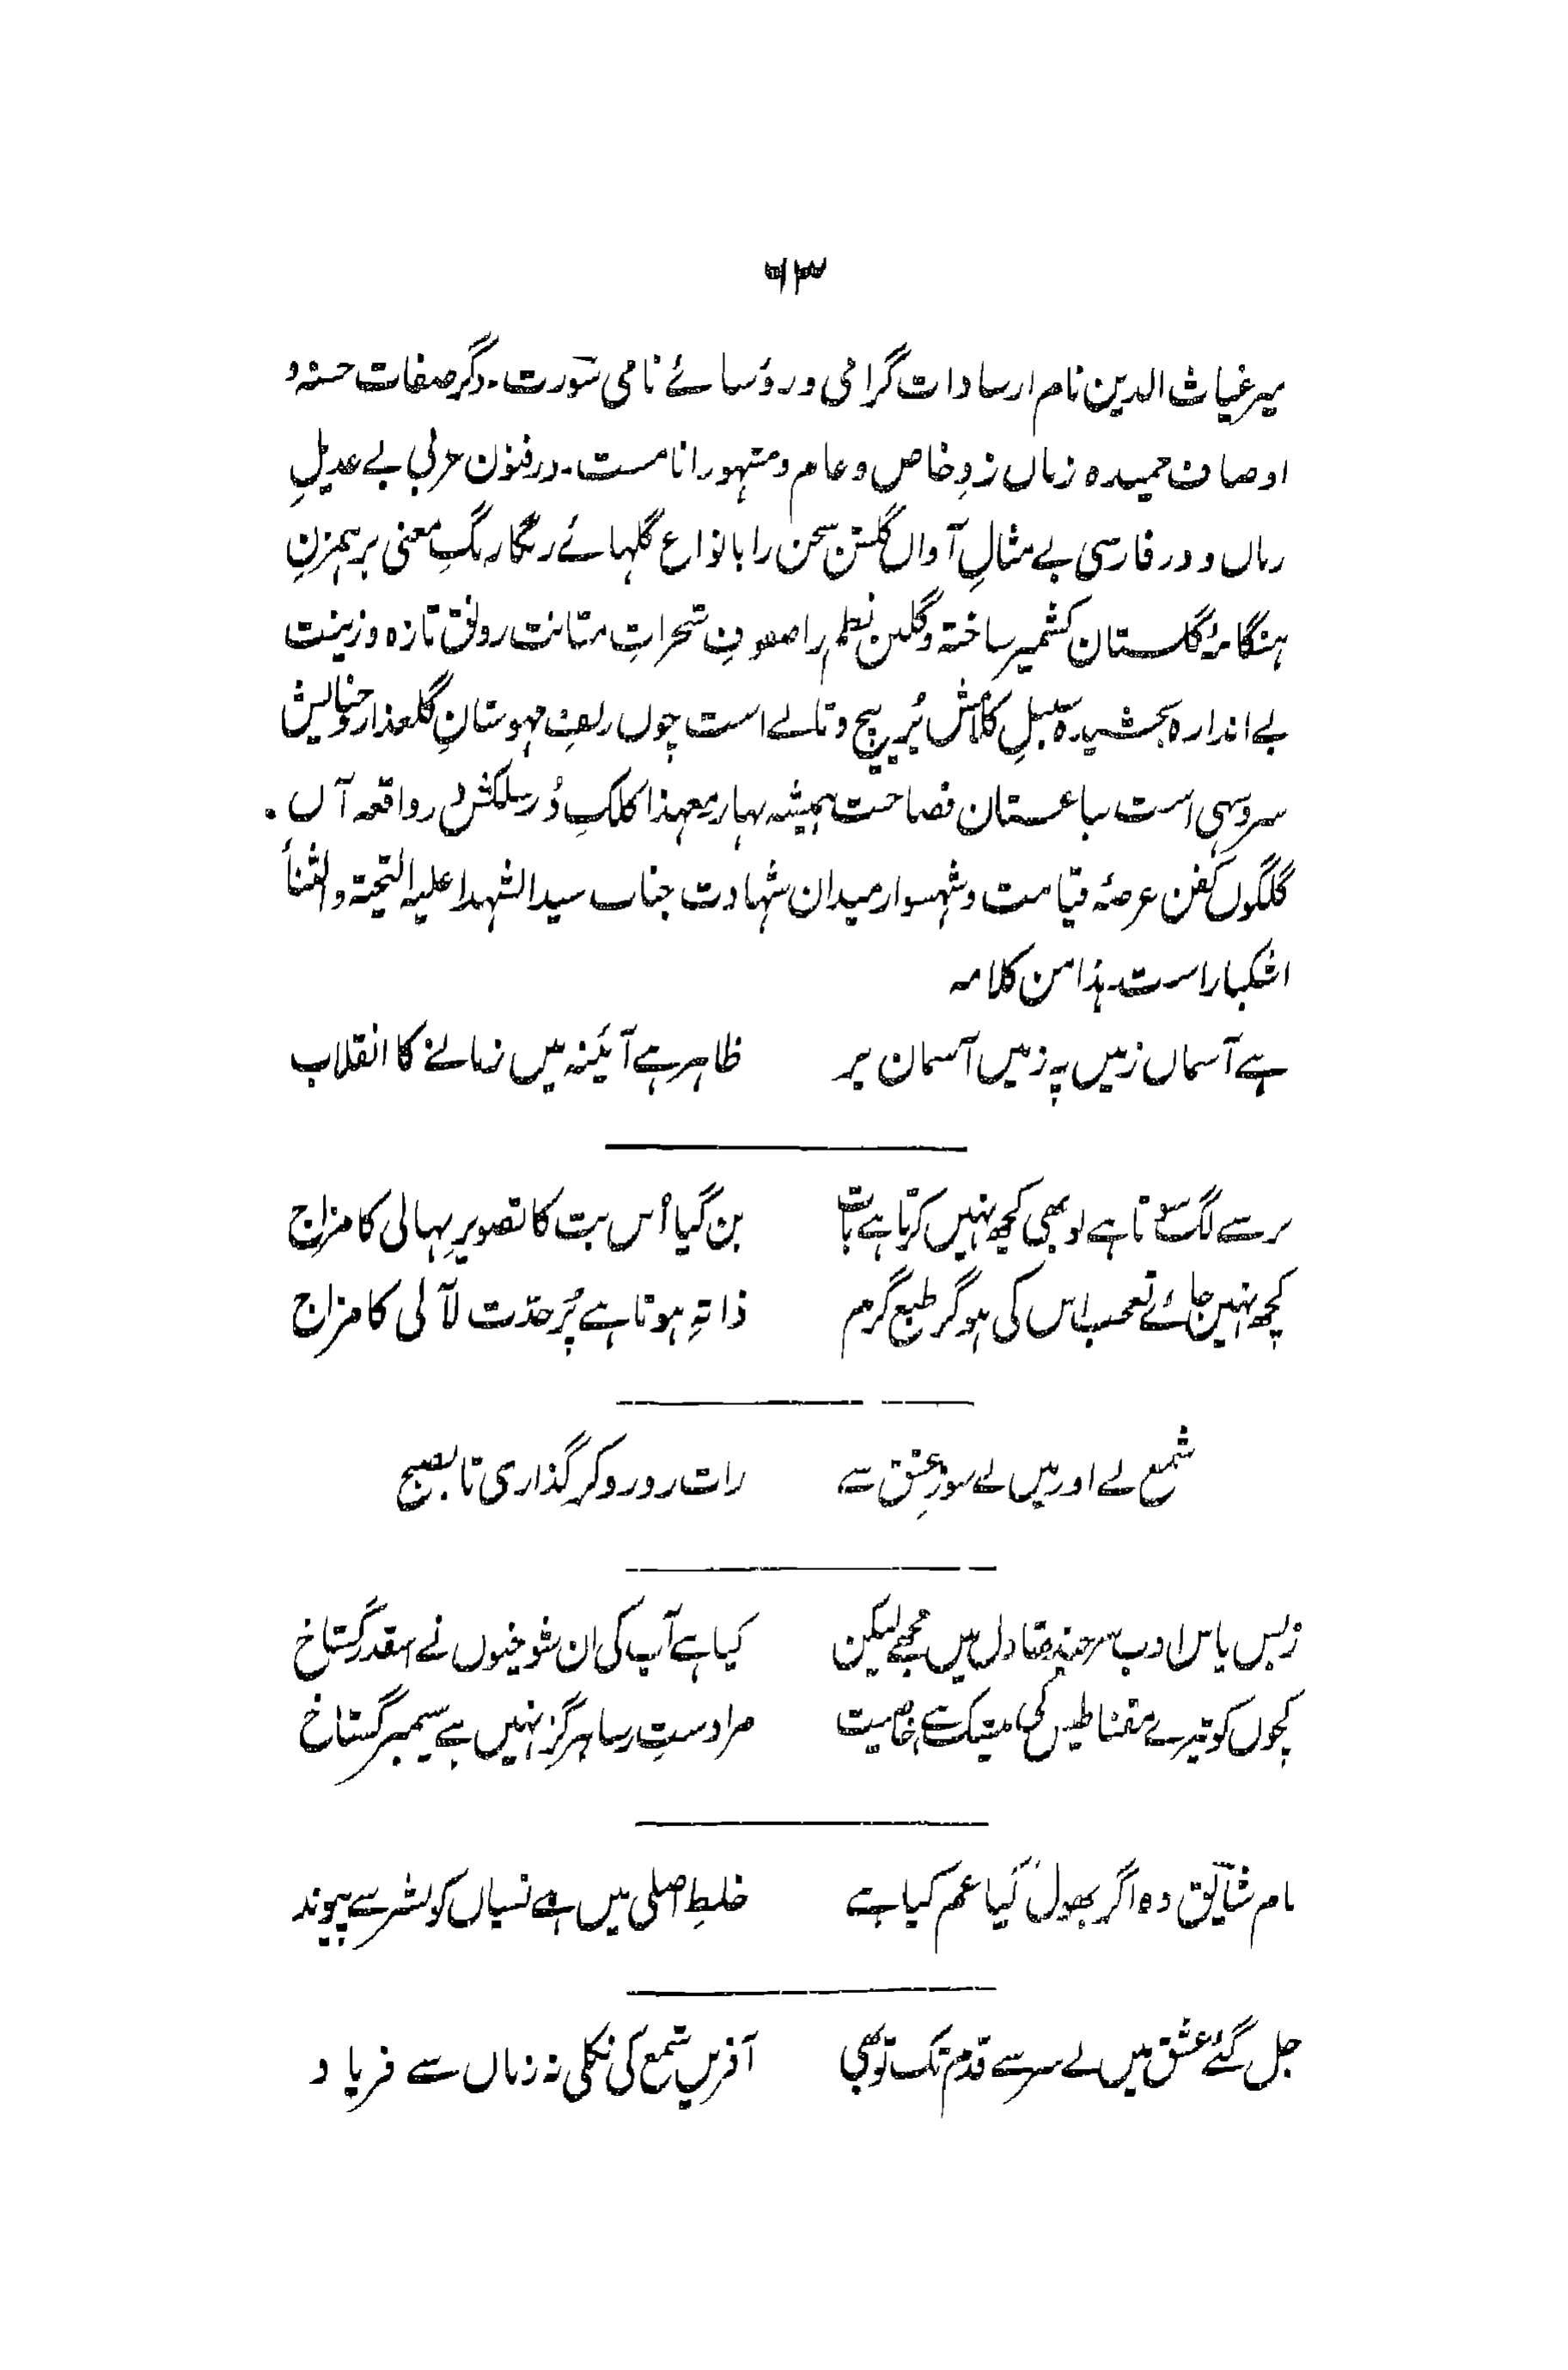 ۶۳
میر غیاث الدین نام از سادات گرامی و رؤسائے نامی سورت۔ دگر صفات حسنہ و
اوصاف حمیدہ زباں زدِ خاص و عام و مشہور انامست۔ در فنون عربی بے عدیلِ
زماں و در فارسی بے مثالِ آواں گلشن سخن را بانواع گلہائے رنگارنگِ معنی برہمزنِ
ہنگامۂ گلستان کشمیر ساختہ و گلبن نظم را بصنوفِ متانت رونق تازہ و زینت
بے اندازہ بخشیدہ سنبلِ کلامش پُر پیچ و تابے است چوں زلفِ مہوشانِ گلعذار و خیالش
سرو سہی است بباغستان فصاحت ہمیشہ بہار معہذا کلکِ دُر سلکش در واقعہ آں
گلگوں کفن عرصۂ قیامت و شہسوار میدان شہادت جناب سید الشہدا علیہ التحیۃ والثنأ
اشکبار است۔ ہذا من کلامہ
ہے آسماں زمیں پہ زمیں آسمان پر ظاہر ہے آئینہ میں زمانے کا انقلاب
سر سے لگ سوتا ہے تو بھی کچھ نہیں کرتا ہے بات بن گیا اُس بت کا تصویرِ نہالی کا مزاج
کچھ نہیں جائے تعجب اس کی ہو گر طبع گرم ذاتہِ ہوتا ہے پُر حدّت لآلی کا مزاج
شمع نے اور میں نے سوزِ عشق سے رات رو رو کر گذاری تا بصبح
زبس پاس ادب ہرچند تھا دل میں مجھے لیکن کیا ہے آپ کی ان شوخیوں نے اسقدر گستاخ
کچوں کو تیرے مقناطیس کی بیشک ہے خاصیت مرا دستِ رسا ہرگز نہیں ہے سیمبر گستاخ
نام شایق وہ اگر بھول گیا غم کیا ہے خلطِ اصلی میں ہے نسیاں کو بشر سے پیوند
جل گئے عشق میں لے سر سے قدم تک تو بھی آفریں شمع کی نکلی نہ زباں سے فریاد